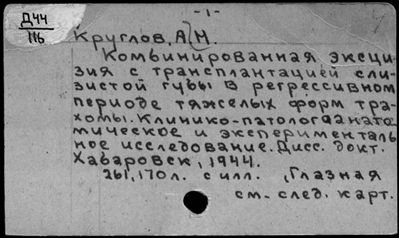 - 1 -
Д44
116
Круглов, А.Н.
Комбинированная эксци-
зия с трансплантацией сли-
зистой губы в регрессивном
периоде тяжелых форм тра-
хомы. Клинико-патологоанато-
мическое и эксперименталь-
ное исследование. Дисс. докт.
Хабаровск, 1944.
261, 170 л. с илл. , Глазная
см. след. карт.